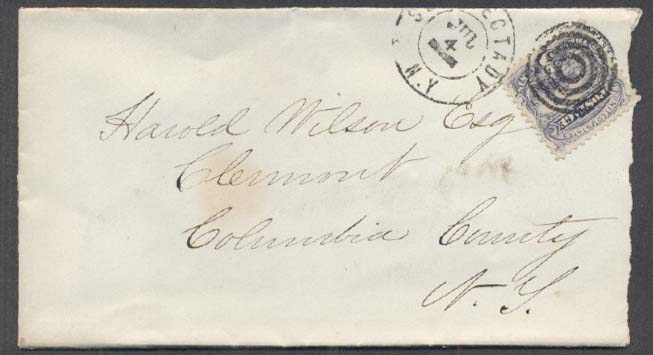 JUL
4
N.Y.
Harold Wilson Esq
Clermont
Columbia County
N. Y.